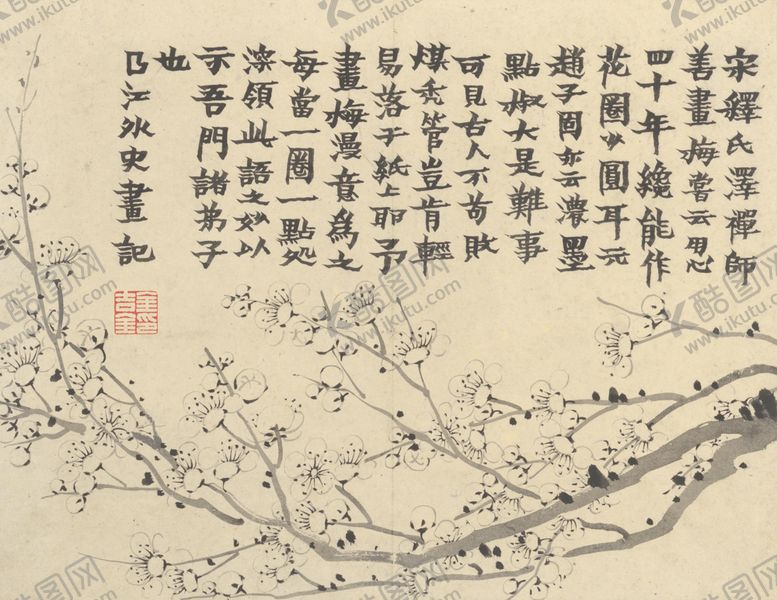 宋釋氏澤禪師
善畫梅嘗云用心
四十年纔能作
花圈少圓耳元
趙子固亦云濃墨
點椒大是難事
可見古人不苟敗
煤禿管豈肯輕
易落于紙上耶予
畫梅漫意為之
每當一圈一點処
深領此語之妙以
示吾門諸弟子
也
曲江外史畫記
金吉金印
酷图网
www.ikutu.com